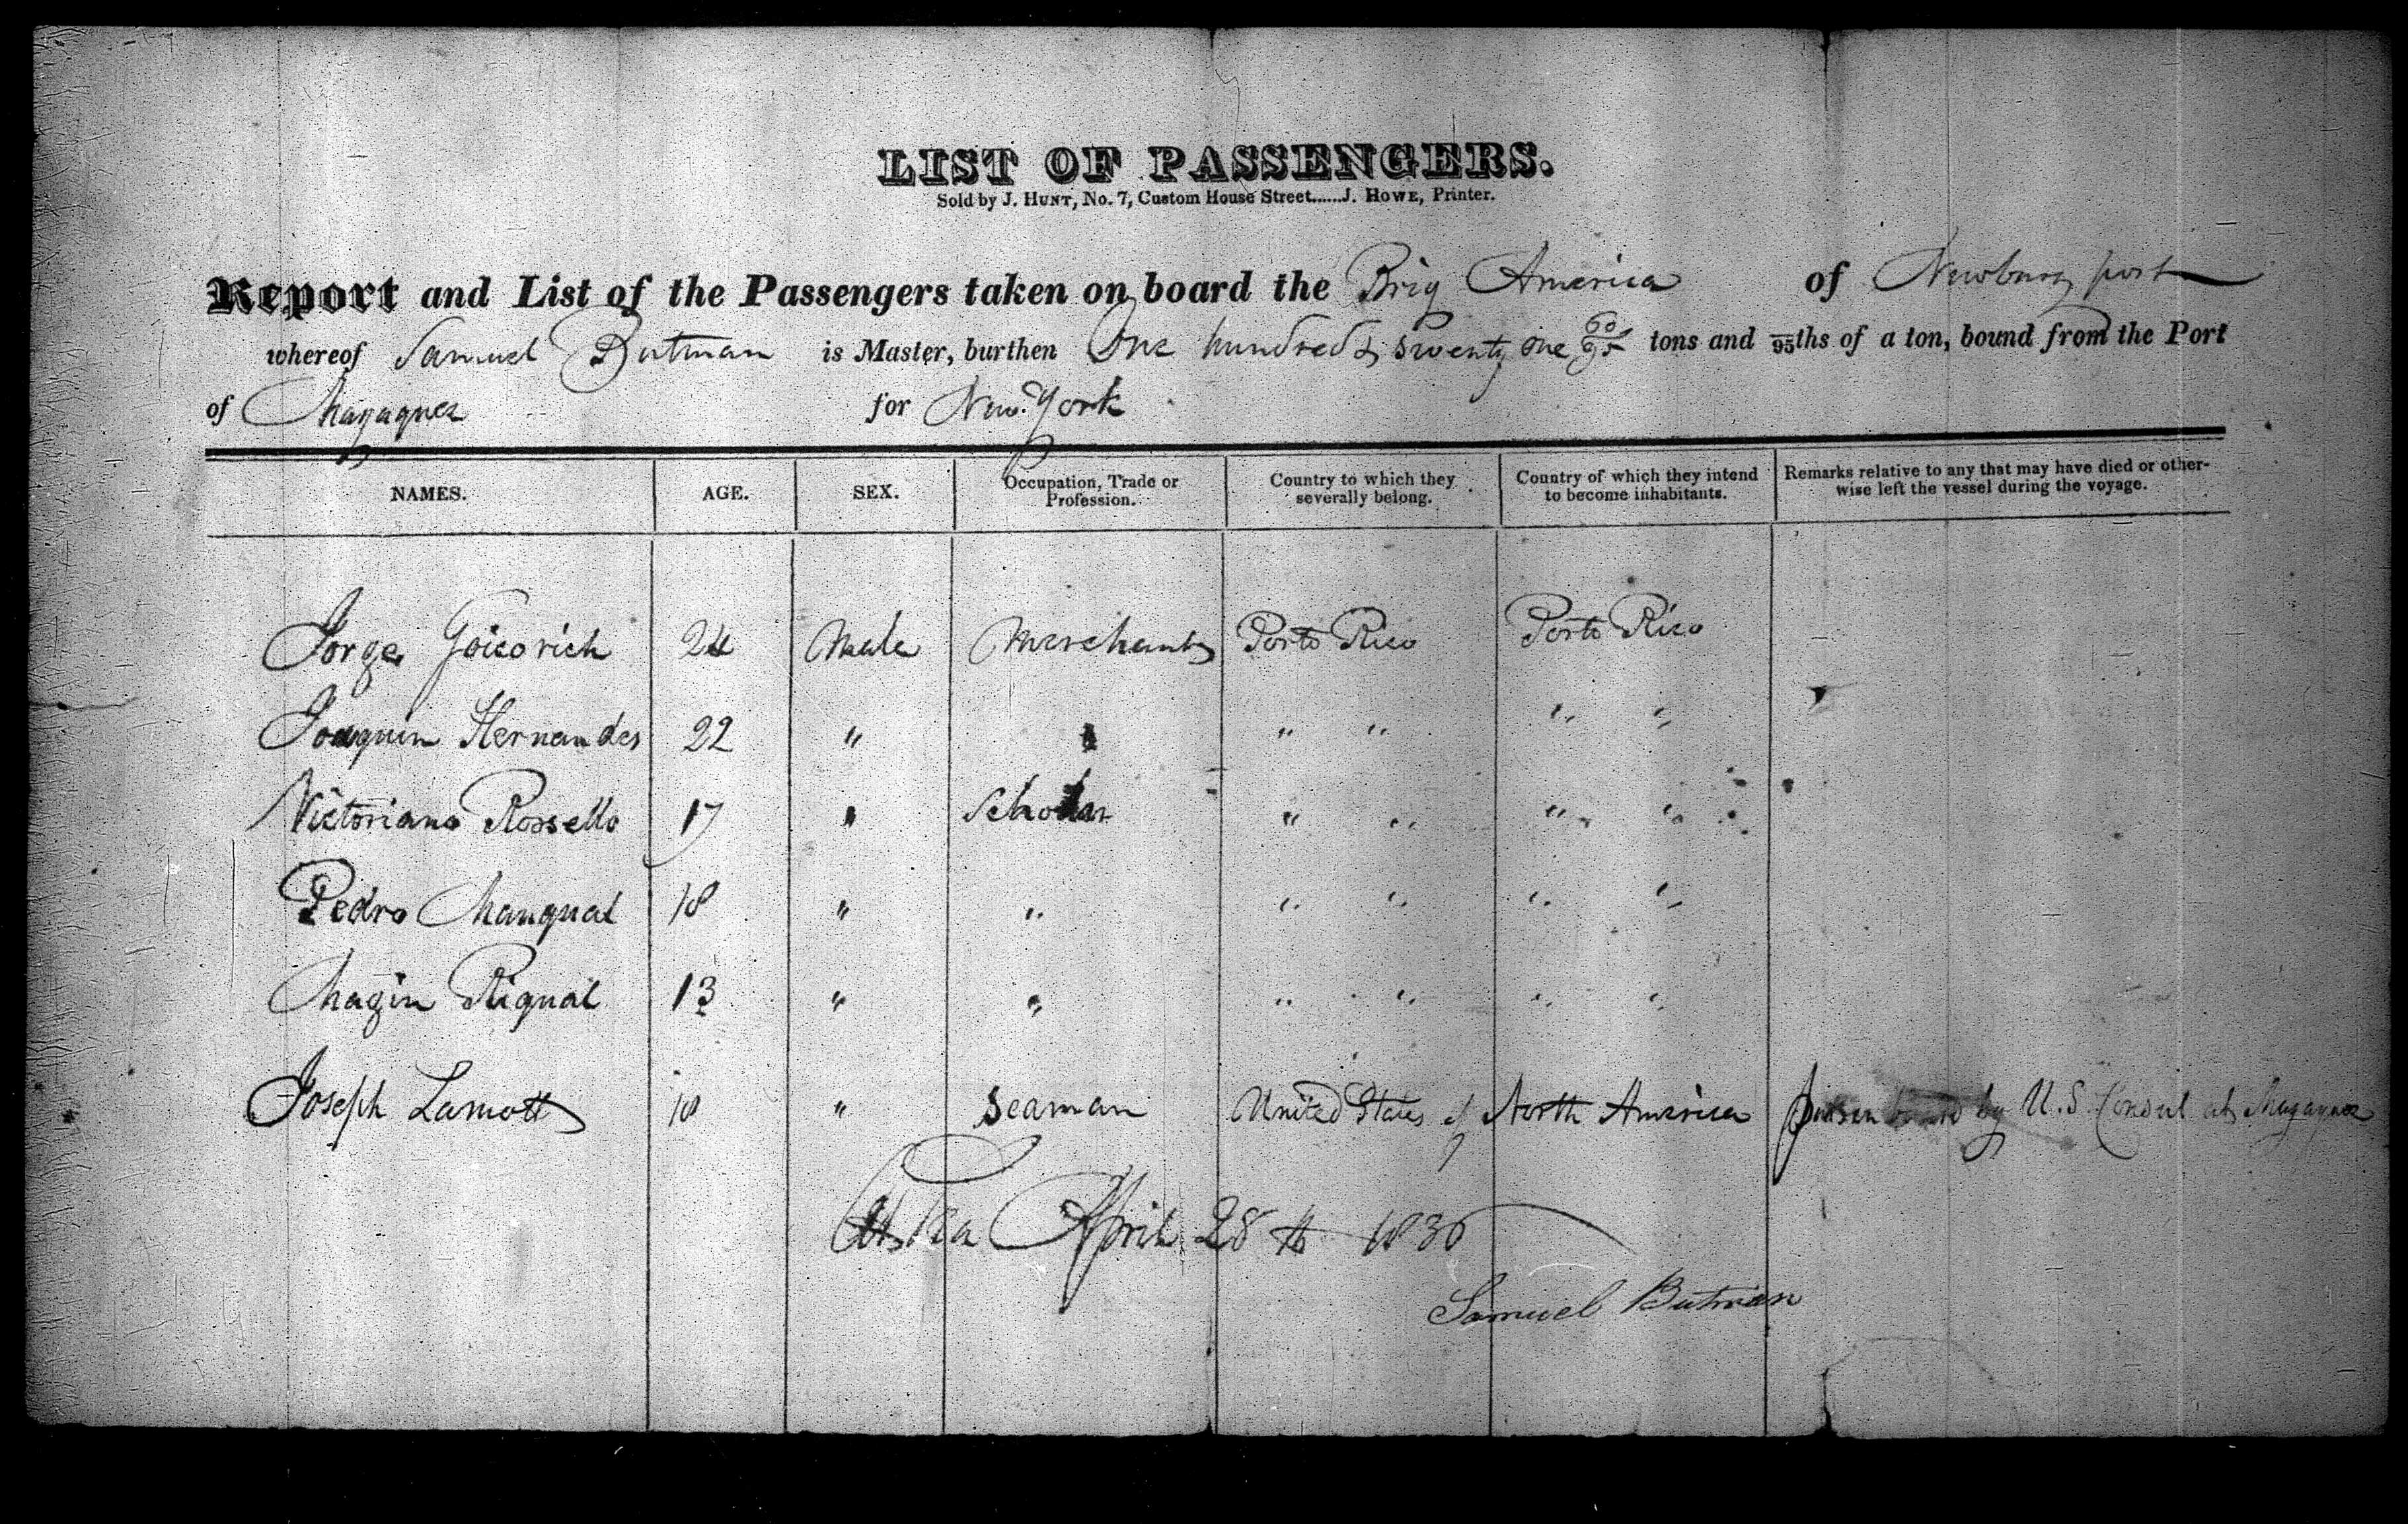 LIST OF PASSENGERS.
Sold by J. HUNT, No. 7, Custom House Street......J. HOWE, Printer.
Report and List of the Passengers taken on board the Brig America of Newburyport
whereof Samuel Butman is Master, burthen One hundred & Twenty one 60/95 tons and 95ths of a ton, bound from the Port
of Mayaguez for New York
NAMES. AGE. SEX. Occupation, Trade or Profession. Country to which they severally belong. Country of which they intend to become inhabitants. Remarks relative to any that may have died or otherwise left the vessel during the voyage.
Jorge Goicorich 24 Male Merchant Porto Rico Porto Rico
Joaquin Hernandes 22 " " " " " "
Victoriano Rossello 17 " Scholar " " " "
Pedro Mangual 18 " " " " " "
Magin Rigual 13 " " " " " "
Joseph Lamott 18 " Seaman United States of North America by U.S. Consul at Mayaguez
At Sea April 28th 1830
Samuel Butman